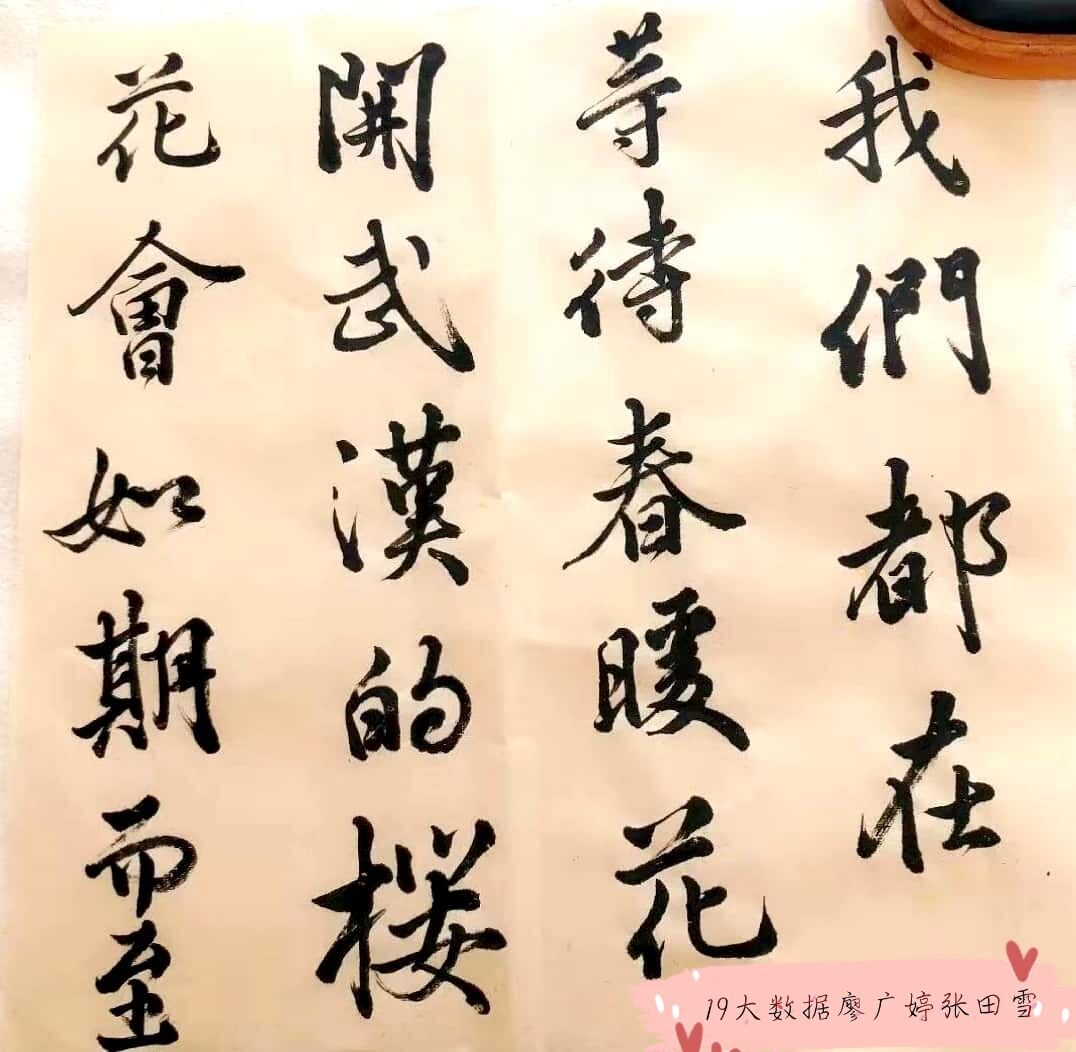 我們都在
等待春暖花
開武漢的桜
花會如期而至
19大数据廖广婷张田雪